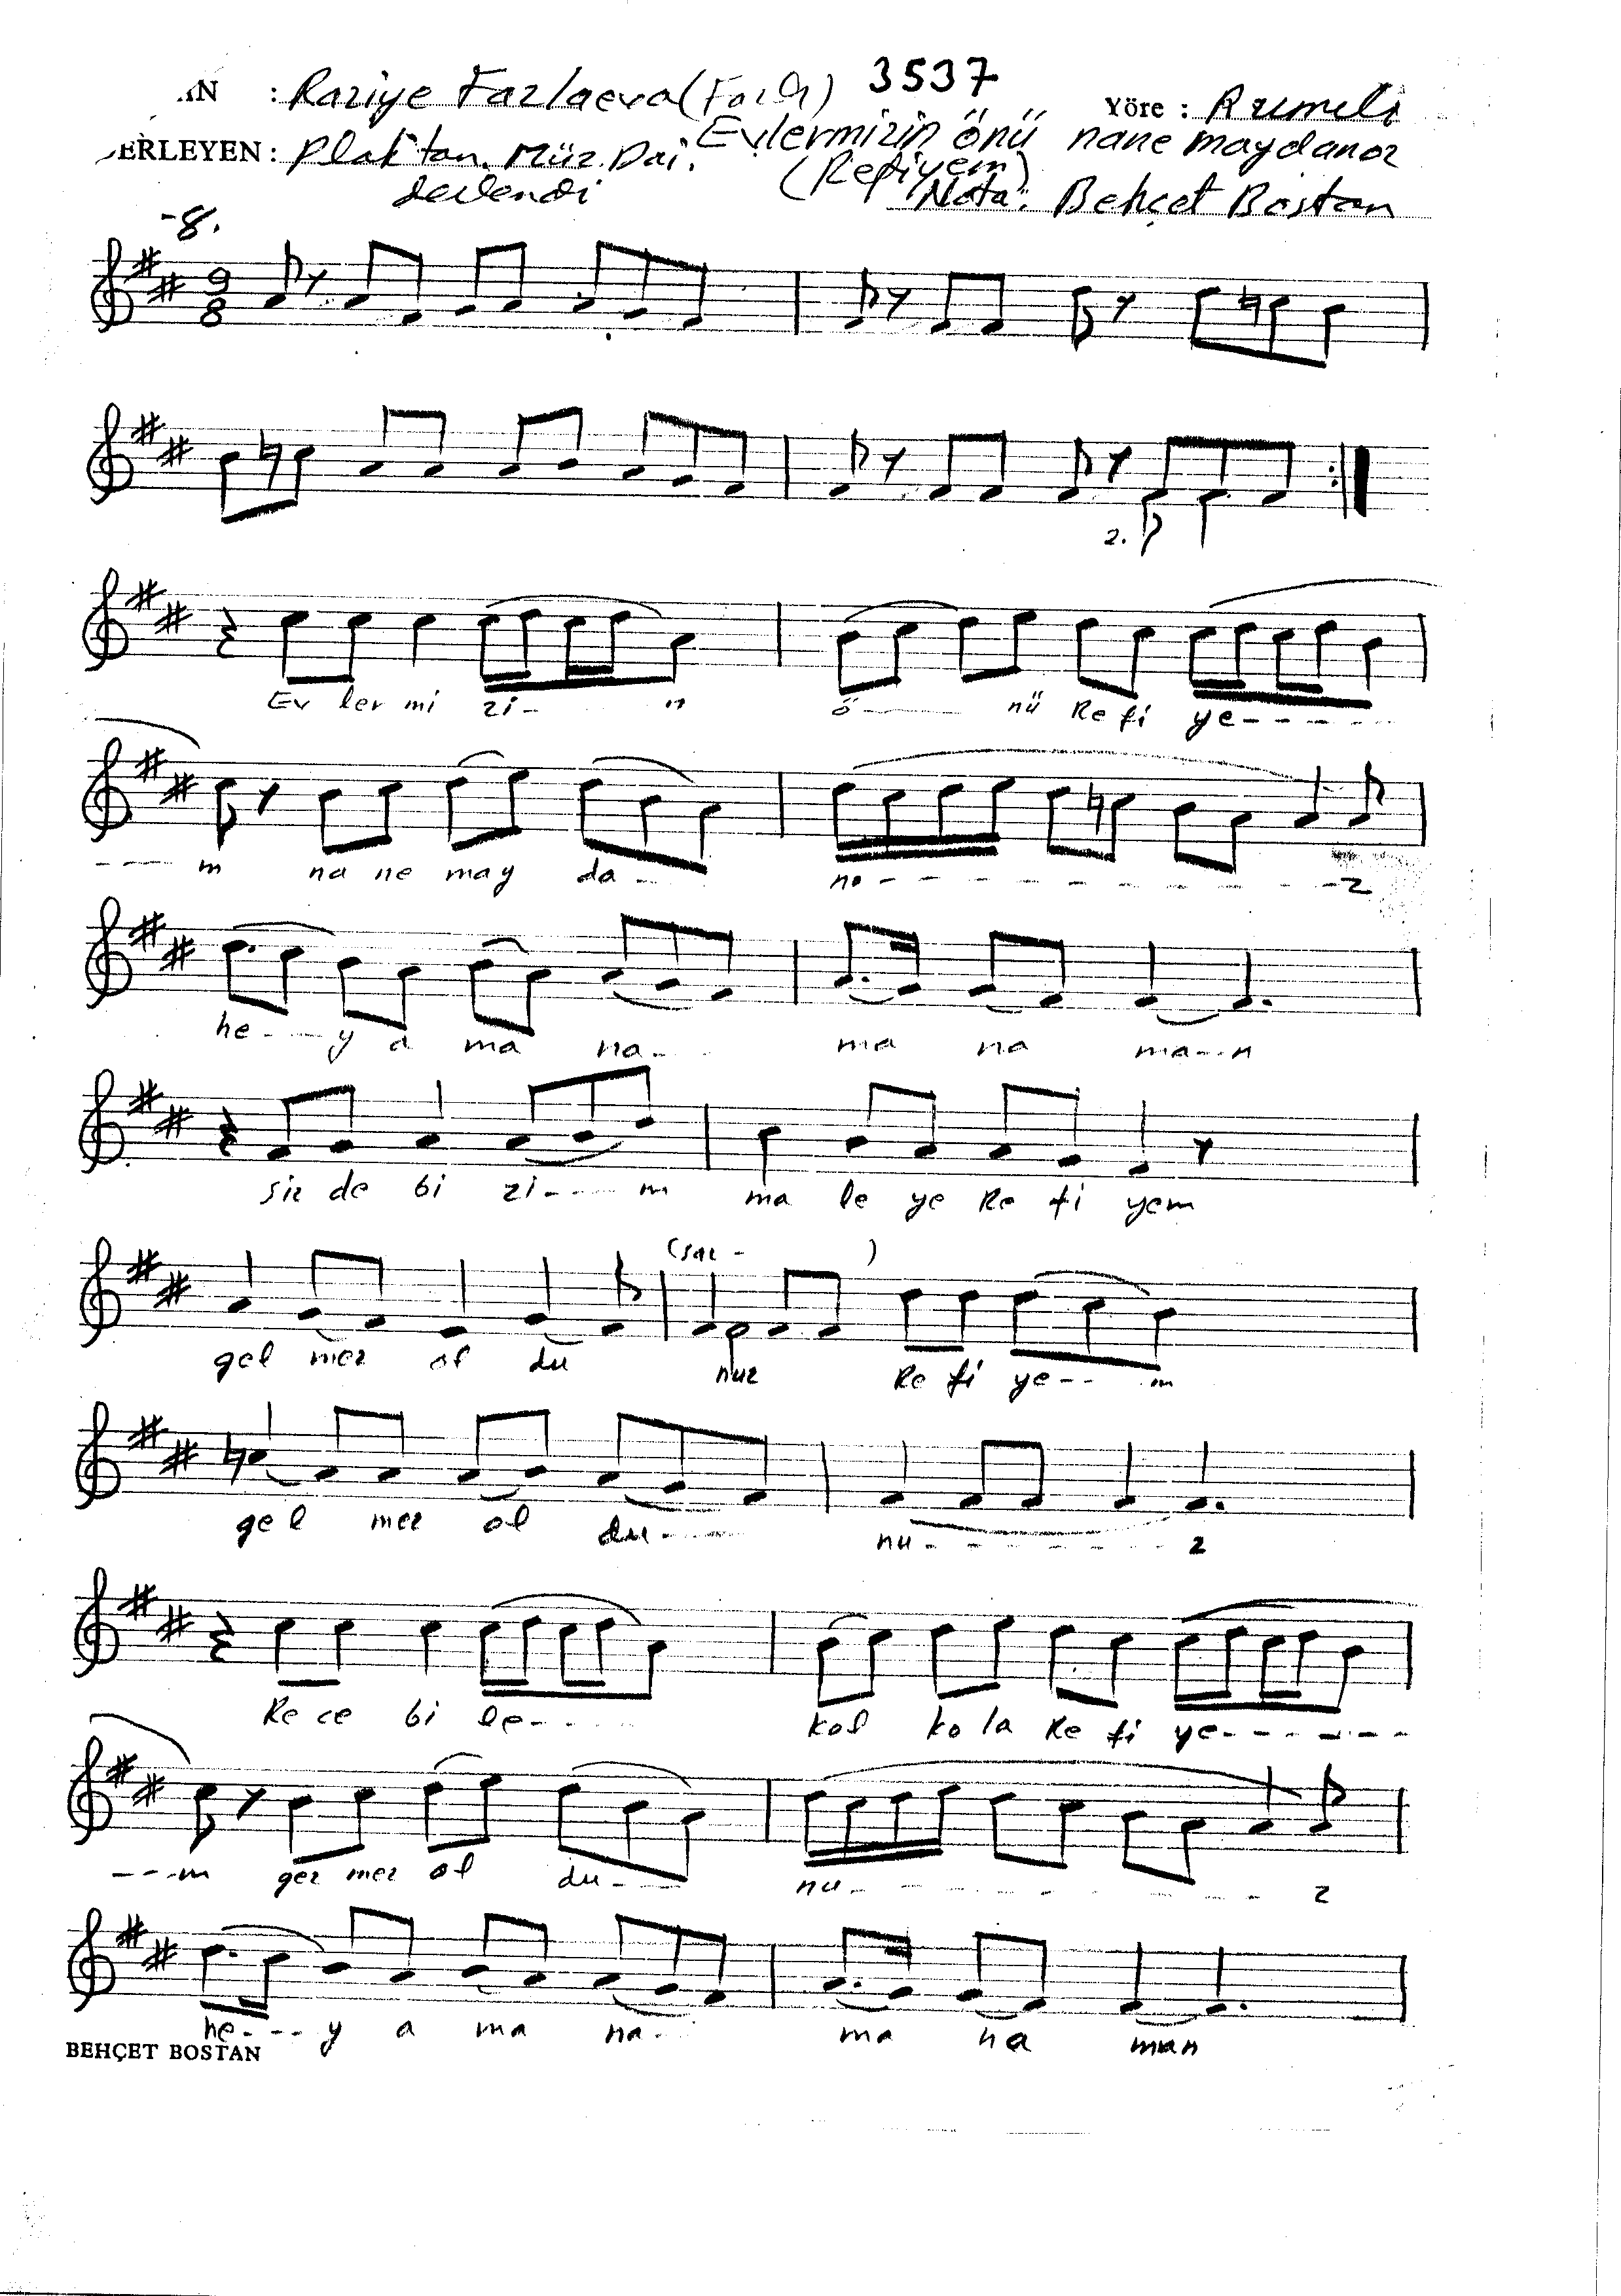 AN : Raziye Fazlaeva ( ) 3537 Yöre : Rumeli
ERLEYEN : Plak'tan Müz. Dai. Evlermizin önü nane maydanoz
derlendi (Refiyem) Nota: Behçet Bostan
-8.
9
8
2.
Ev ler mi zi- n ö--- nü Re fi ye-----
--- m na ne may da-- no---------z
he---y a ma na-- ma na ma--n
siz de bi zi---m ma le ye Re fi yem
(saz - )
gel mez ol du nuz Re fi ye-- m
gel mez ol du--- nu------z
Re ce bi le---- kol ko la Re fi ye------
---m gez mez ol du--- nu-------z
he---y a ma na-- ma na man
BEHÇET BOSTAN